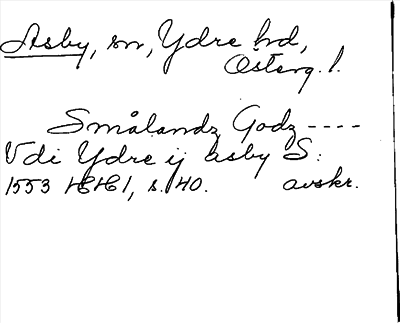 Asby, sn, Ydre hrd,
Österg. l.
Smålandz Godz ----
Vdi Ydre ij asby S:
1553 HH 1, s. 40. avskr.